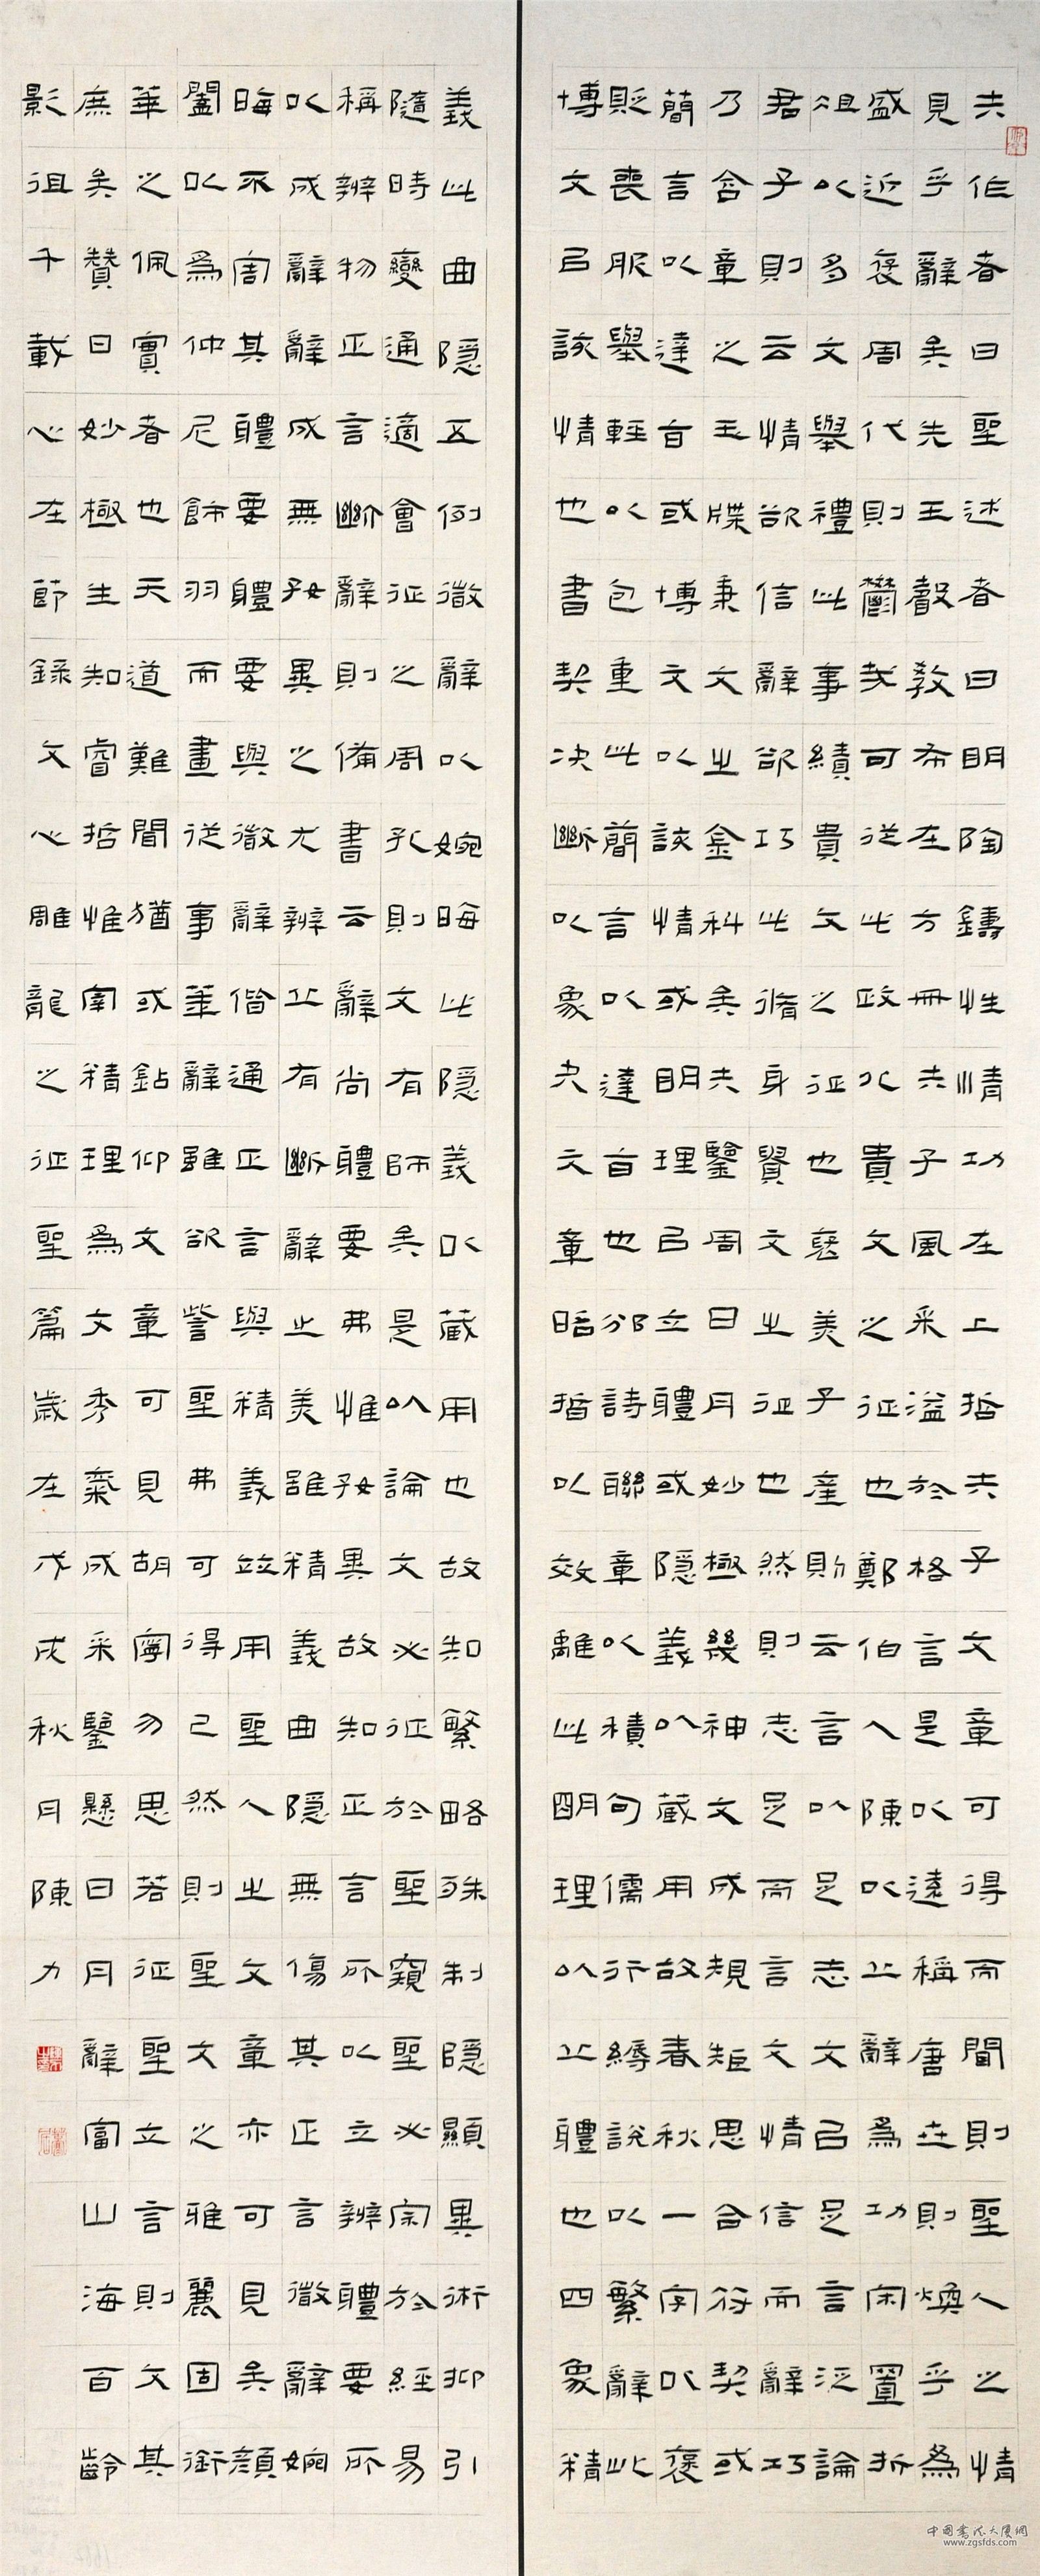 夫作者曰聖述者曰明陶鑄性情功在上哲夫子文章可得而聞則聖人之情
見乎辭矣先王聲教布在方冊夫子風采溢於格言是以遠稱唐世則煥乎為
盛近褒周代則鬱哉可從此政化貴文之征也鄭伯入陳以立辭為功宋置折
俎以多文舉禮此事績貴文之征也褒美子產則云言以足志文已足言泛論
君子則云情欲信辭欲巧此修身賢文之征也然則志足而言文情信而辭巧
乃含章之玉牒秉文之金科矣夫鑒周日月妙極幾神文成規矩思合符契或
簡言以達旨或博文以該情或明理已立體或隱義以藏用故春秋一字以褒
貶喪服舉輕以包重此簡言以達旨也邠詩聯章以積句儒行縟說以繁辭此
博文已該情也書契決斷以象夬文章晤晢以效離此明理以立體也四象精
義此曲隱五例微辭以婉晦此隱義以藏用也故知繁略殊制隱顯異術抑引
隨時變通適會征之周孔則文有師矣是以論文必征於聖窺聖必宗於經易
稱辨物正言斷辭則備書云辭尚體要弗惟好異故知正言所以立辨體要所
以成辭辭成無好異之尤辨立有斷辭之美雖精義曲隱無傷其正言微辭婉
晦不害其體要體要與微辭偕通正言與精義並用聖人之文章亦可見矣顏
闔以為仲尼飾羽而畫從事華辭雖欲訾聖弗可得已然則聖文之雅麗固銜
華之佩實者也天道難聞猶或鉆仰文章可見胡寧勿思若征聖立言則文其
庶矣贊曰妙極生知睿哲惟宰精理為文秀氣成采鑒懸日月辭富山海百齡
影徂千載心在節錄文心雕龍之征聖篇歲在戊戌秋月陳力
中國書法大廈網
www.zgsfds.com